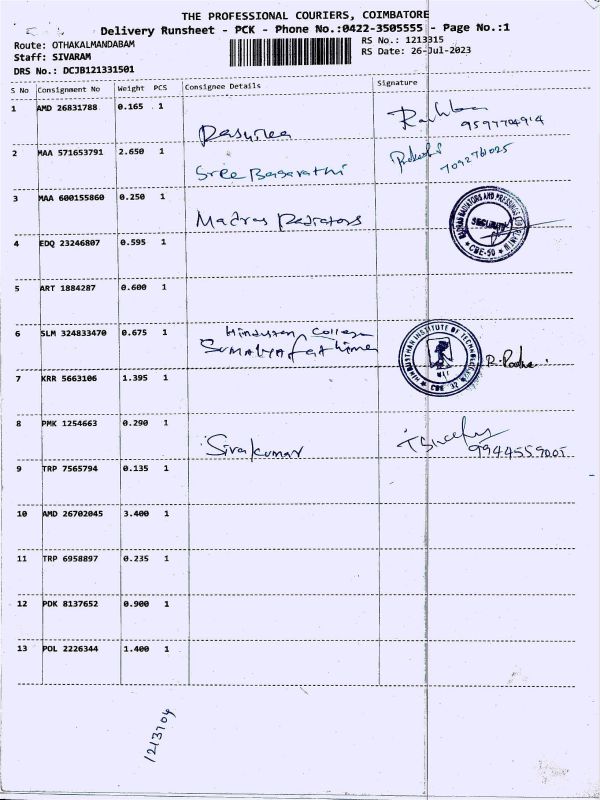 THE PROFESSIONAL COURIERS, COIMBATORE
Delivery Runsheet - PCK - Phone No.:0422-3505555 - Page No.:1
Route: OTHAKALMANDABAM
RS No.: 1213315
Staff: SIVARAM
RS Date: 26-Jul-2023
DRS No.: DCJB121331501
S No Consignment No Weight PCS Consignee Details Signature
1 AMD 26831788 0.165 1
2 MAA 571653791 2.650 1 Sree Basarathi
3 MAA 600155860 0.250 1 Madras Radiators
SECURITY
CBE-50
4 EDQ 23246807 0.595 1
5 ART 1884287 0.600 1
6 SLM 324833470 0.675 1 Hindustan College
HINDUSTHAN INSTITUTE OF TECHNOLOGY
CBE 32
7 KRR 5663106 1.395 1
8 PMK 1254663 0.290 1 Sivakumar
9 TRP 7565794 0.135 1
10 AMD 26702045 3.400 1
11 TRP 6958897 0.235 1
12 PDK 8137652 0.900 1
13 POL 2226344 1.400 1
1213704